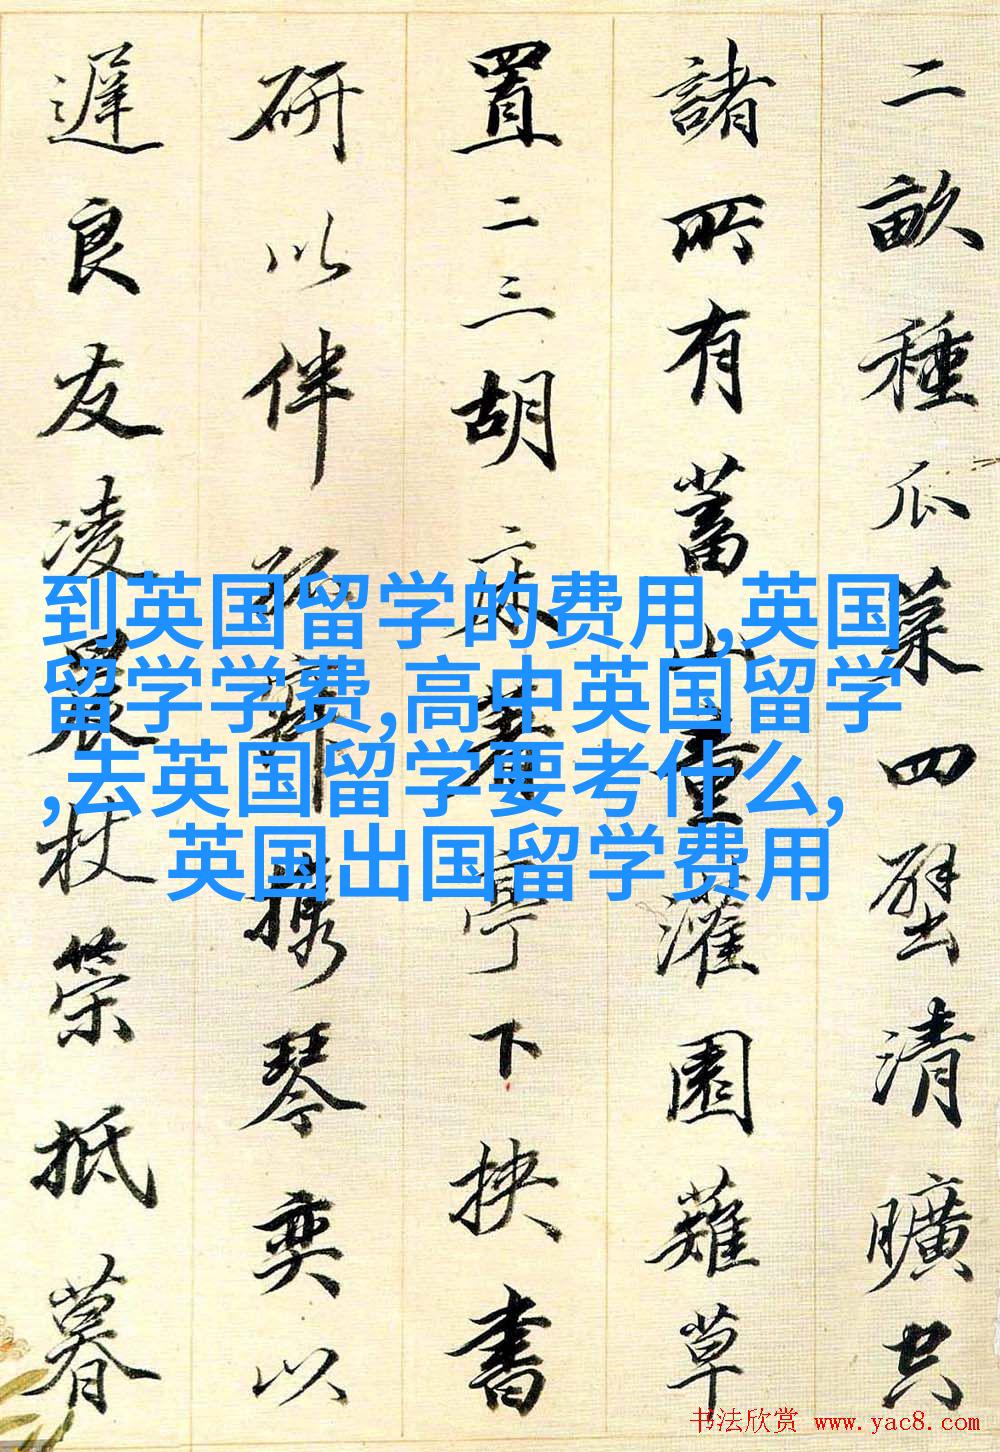 二畝種瓜菜四壁清曠空
諸所有蓄山童灌園薙草
置二三胡床著亭下挾書
研以伴孤寂携琴奕以
遲良友凌晨杖策抵暮
到英国留学的费用,英国
留学学费,高中英国留学
,去英国留学要考什么,
英国出国留学费用
书法欣赏 www.yac8.com